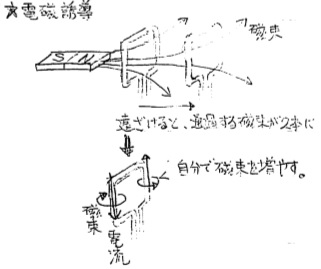 ☆電磁誘導
磁束
S N
遠ざけると、通過する磁束が2本に
自分で磁束を増やす。
磁束
電流